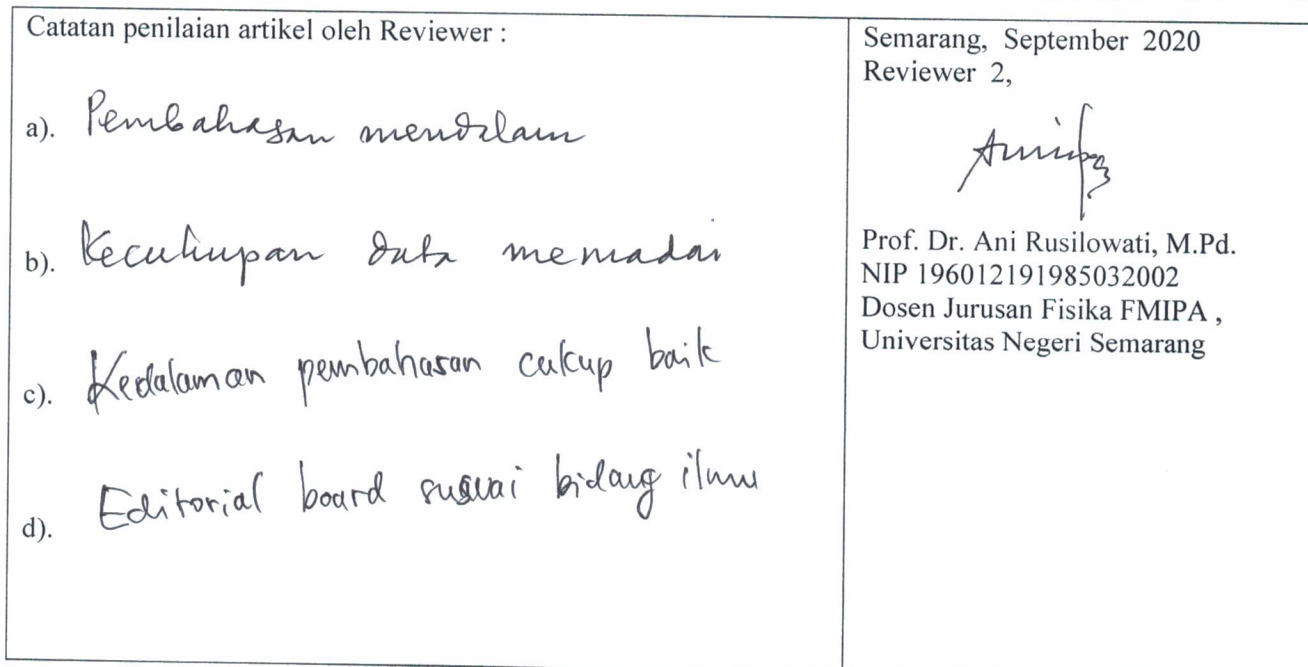 Catatan penilaian artikel oleh Reviewer :
a). Pembahasan mendalam
b). Kecukupan data memadai
c). Kedalaman pembahasan cukup baik
d). Editorial board susuai bidang ilmu
Semarang, September 2020
Reviewer 2,
Prof. Dr. Ani Rusilowati, M.Pd.
NIP 196012191985032002
Dosen Jurusan Fisika FMIPA ,
Universitas Negeri Semarang